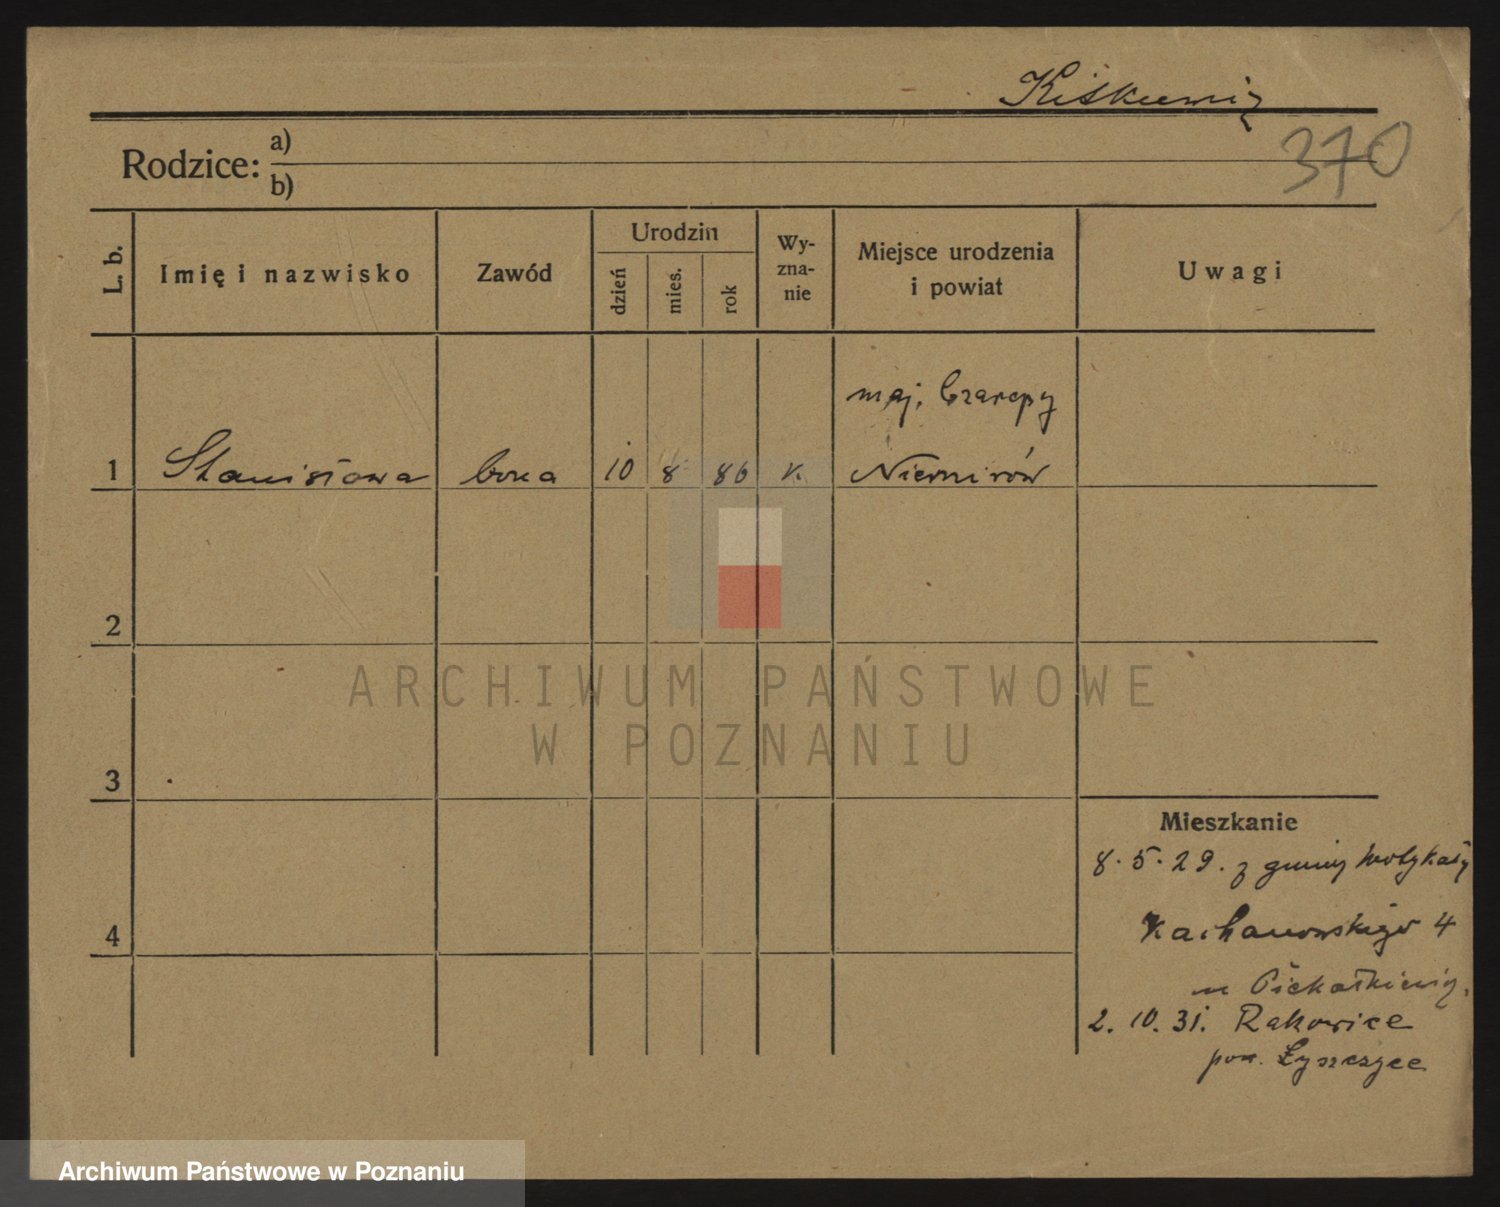 Kiśkiewicz
370
Rodzice: a)
b)
L. b.
Imię i nazwisko
Zawód
Urodzin
dzień
mies.
rok
Wy-
zna-
nie
Miejsce urodzenia
i powiat
Uwagi
maj. Czarcpy
1 Stanisława bona 10 8 86 k. Niemirów
2
3
4
Mieszkanie
8. 5. 29. z gminy Motykały
Kachanowskiego 4
m Piekałkiewicz.
2. 10. 31. Rakowice
pow. Łyszczyce
ARCHIWUM PAŃSTWOWE
W POZNANIU
Archiwum Państwowe w Poznaniu